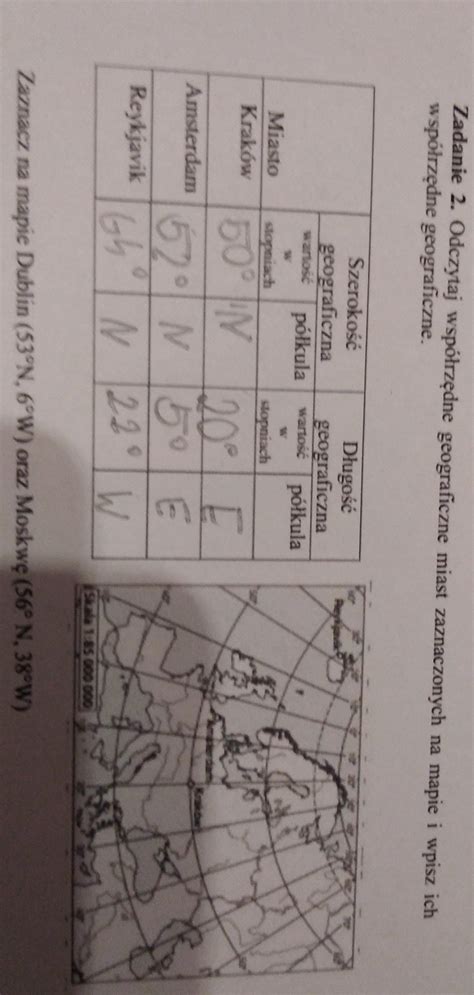 Zadanie 2. Odczytaj współrzędne geograficzne miast zaznaczonych na mapie i wpisz ich
współrzędne geograficzne.
Miasto
Szerokość
geograficzna
Długość
geograficzna
wartość
w
stopniach
półkula
wartość
w
stopniach
półkula
Kraków 50° N 20° E
Amsterdam 52° N 5° E
Reykjavik 64° N 22° W
Reykjavik
Amsterdam
Kraków
Skala 1:85 000 000
Zaznacz na mapie Dublin (53°N, 6°W) oraz Moskwę (56° N, 38°W)